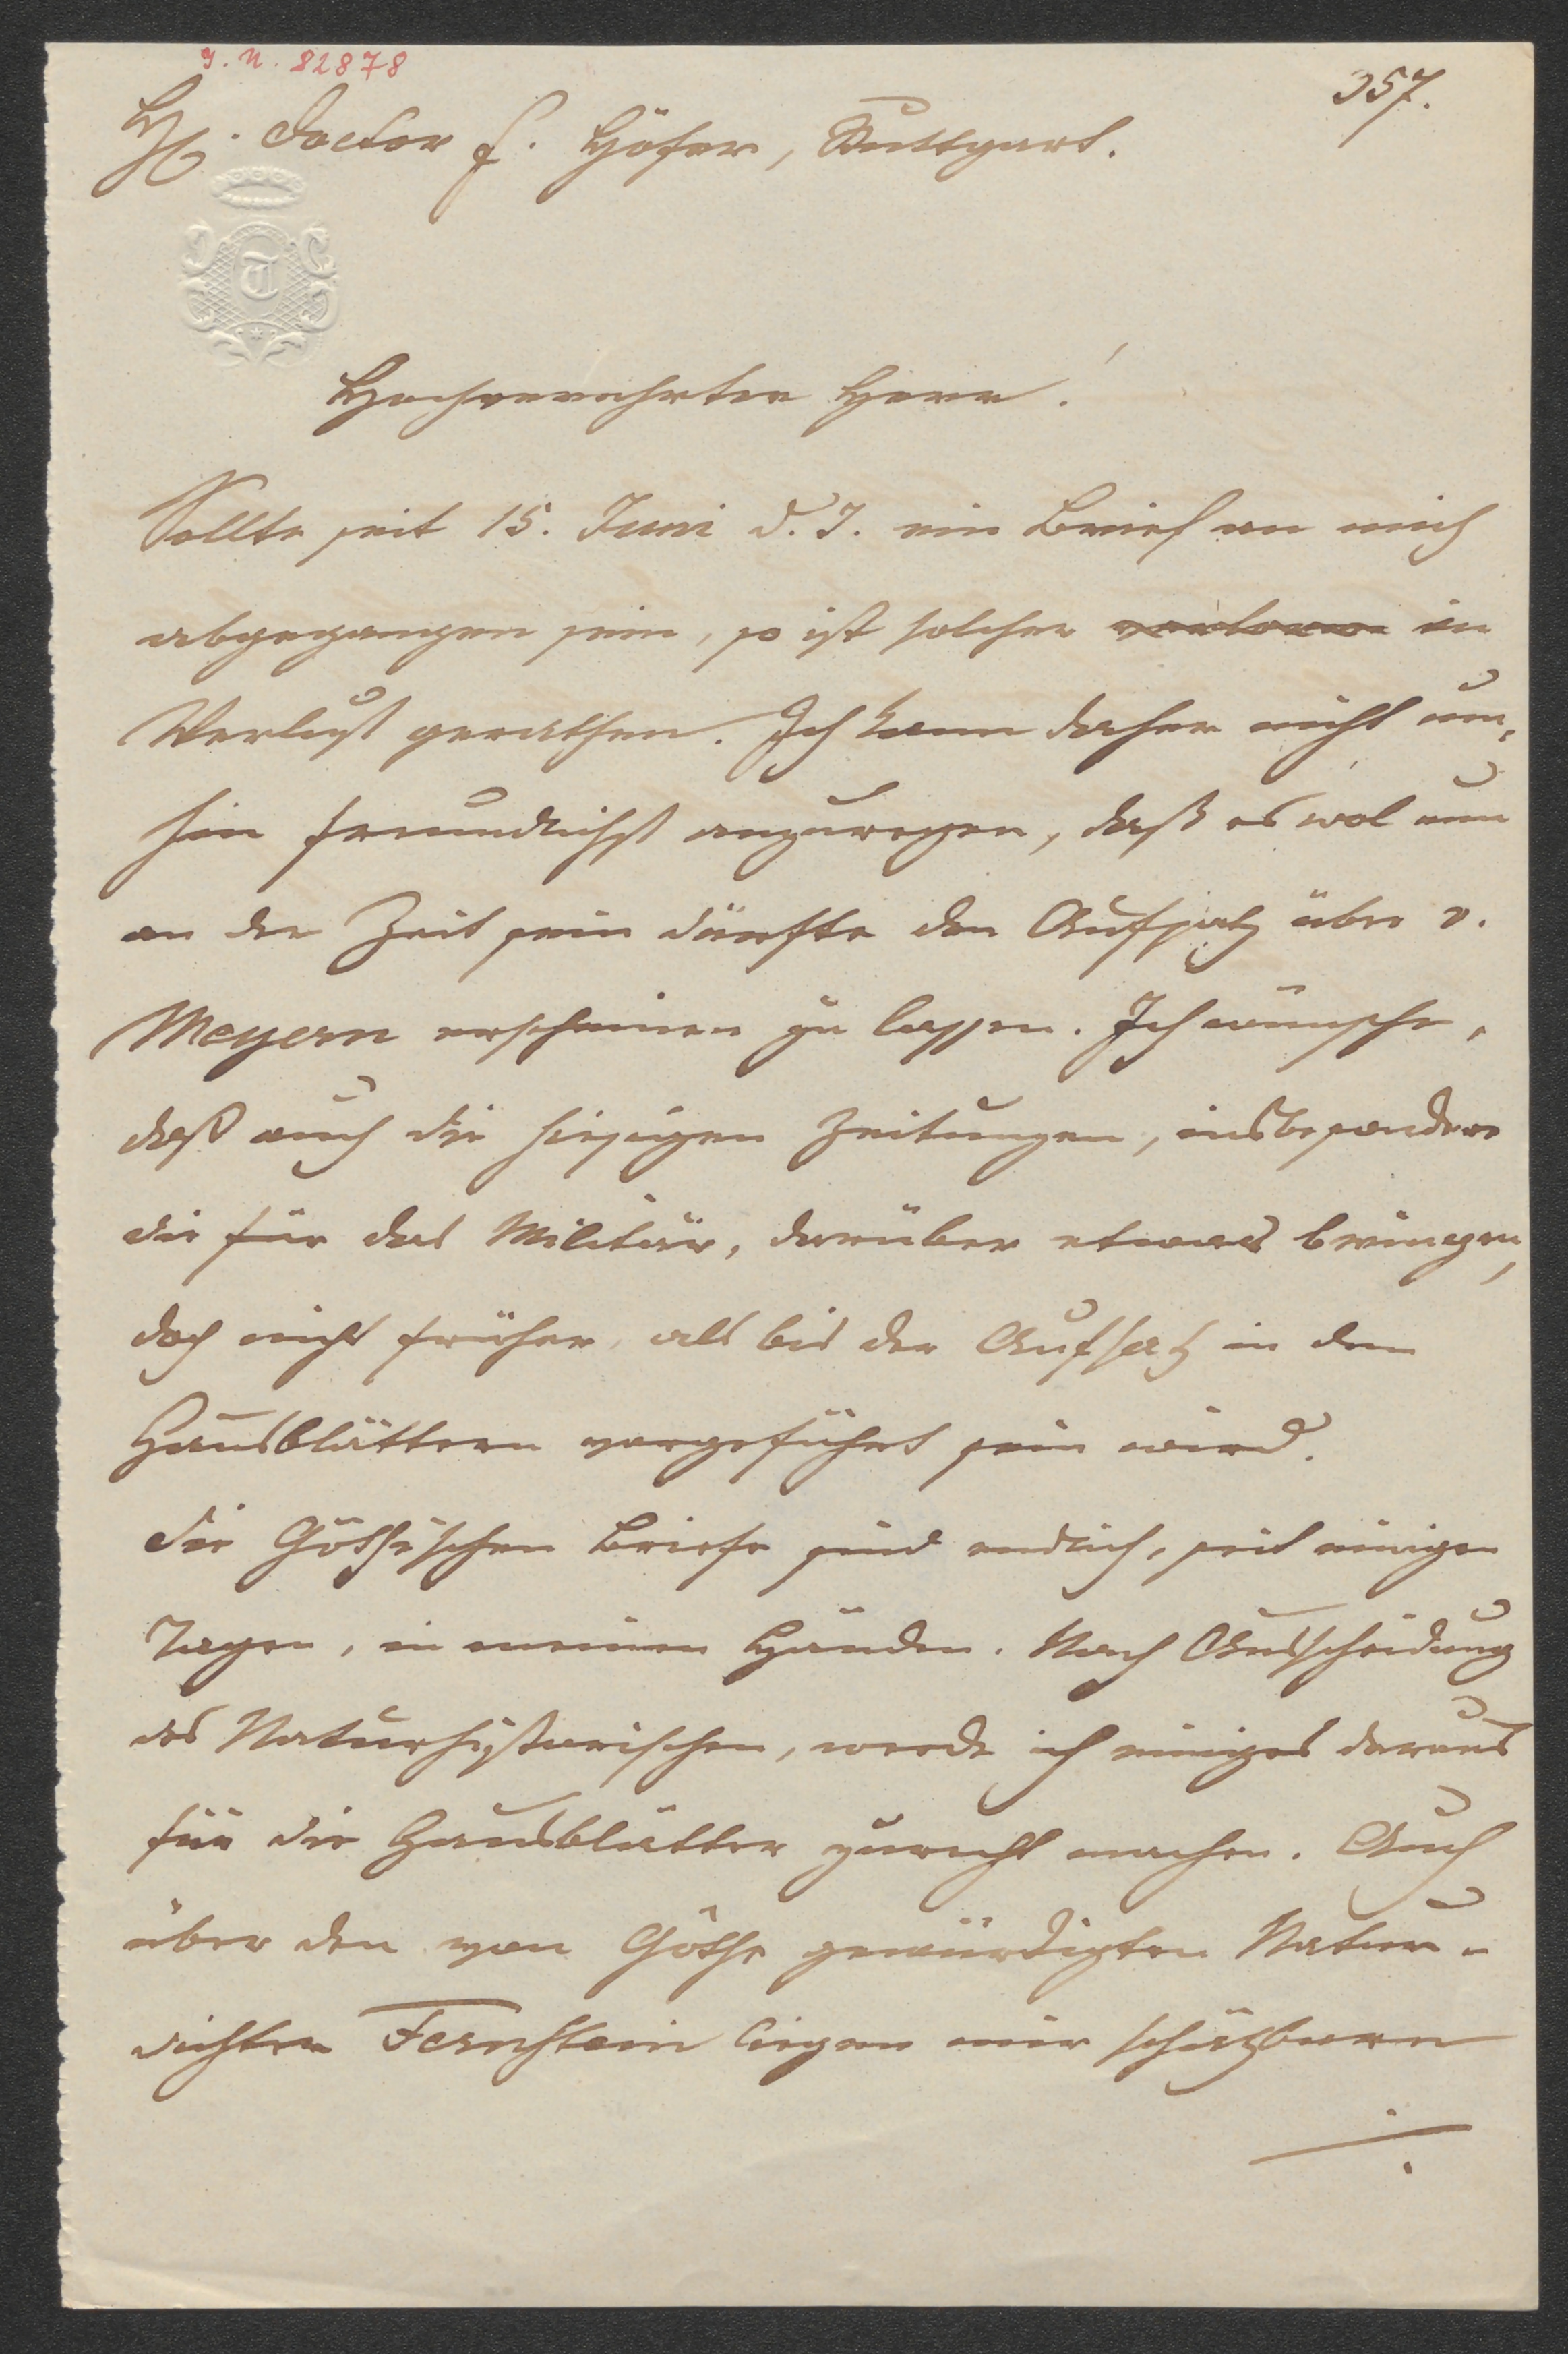 J. N. 82878
357.
H. Doctor E. Höfer, Stuttgart.
T
Hochverehrter Herr!
Sollte seit 15. Juni d. J. ein Brief an mich
abgegangen sein, so ist solcher verloren in
Verlust gerathen. Ich kann daher nicht um-
hin freundlichst anzuregen, daß es wol nun
an der Zeit sein dürfte den Aufsatz über v.
Meyern erscheinen zu lassen. Ich wünsche,
daß auch die hiesigen Zeitungen, insbesondere
die für das Militär, darüber etwas bringen,
doch nicht früher, als bis der Aufsatz in den
Hausblättern vorgeführt sein wird.
Die Göthe'schen Briefe sind endlich, seit einigen
Tagen, in meinen Händen. Nach Ausscheidung
des Naturhistorischen, werde ich einiges daraus
für die Hausblätter zurecht machen. Auch
über den von Göthe gewürdigten Natur-
dichter Fernstein liegen mir schätzbare
./.